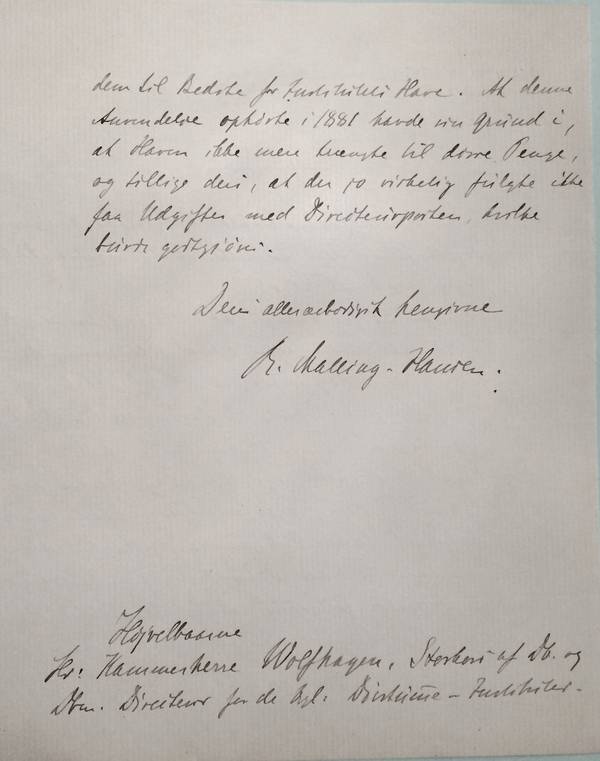 dem til Bedste for Institutets Have. At denne
Anvendelse ophörte i 1881 havde sin Grund i,
at Haven ikke mere trængte til disse Penge,
og tillige deri, at der jo virkelig fulgte ikke
faa Udgifter med Directeurposten, hvilke
burde godtgjöres.
Deres allerærbödigst hengivne
R. Malling-Hansen.
Höjvelbaarne
Hr. Kammerherre Wolfhagen, Storkors af Db. og
Dbm. Directeur for de Kgl. Dövstumme-Instituter.